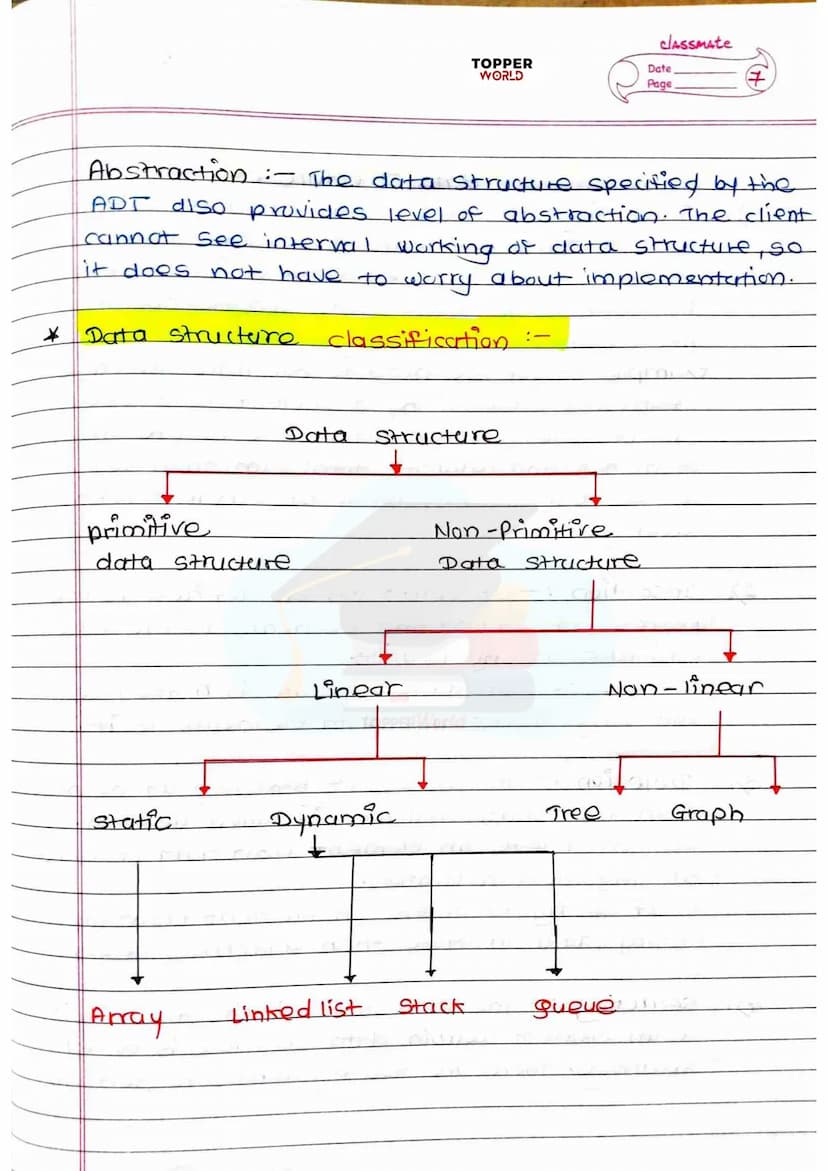 classmate
TOPPER
WORLD
Date
Page
7
Abstraction :- The data structure specified by the
ADT also provides level of abstraction. The client
cannot see interval working of data structure, so
it does not have to worry about implementation.
* Data structure classification :-
Data structure
primitive
data structure
Non-Primitive
Data structure
Linear
Non-linear
Static
Dynamic
Tree
Graph
Array
Linked list
Stack
queue